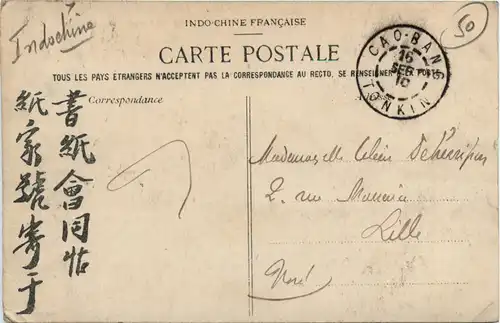 Indochine
50
INDO-CHINE FRANÇAISE
CARTE POSTALE
TOUS LES PAYS ÉTRANGERS N'ACCEPTENT PAS LA CORRESPONDANCE AU RECTO, SE RENSEIGNER
CAO-BANG
16
SEPT
10
TONKIN
Correspondance
書紙會同帖
紙家號寄于
Mademoiselle
2. rue
Lille
Nord